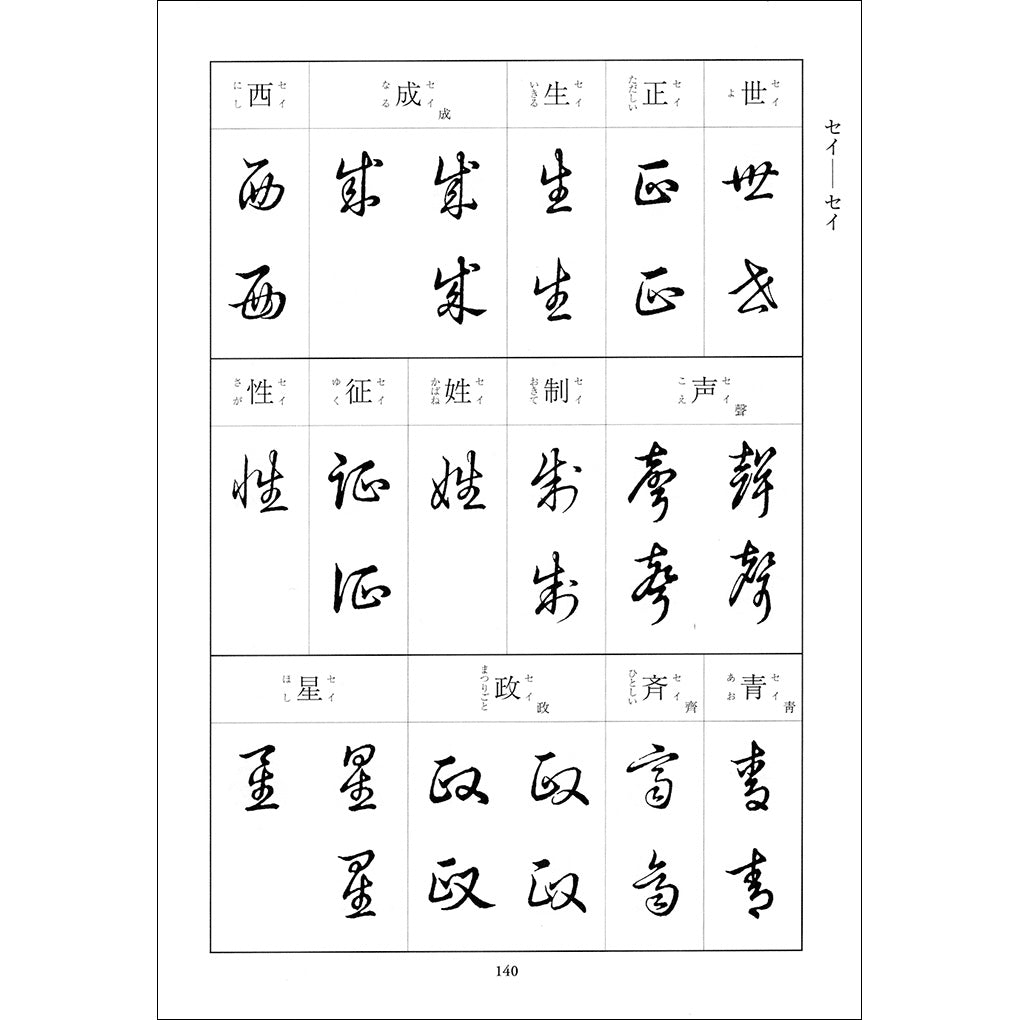 セイ——セイ
セイ 世 よ
世
世
セイ 正 ただしい
正
正
セイ 生 いきる
生
生
セイ 成 なる 成
成
成
成
セイ 西 にし
西
西
セイ 声 こえ 聲
聲
聲
聲
聲
セイ 制 おきて
制
制
セイ 姓 かばね
姓
セイ 征 ゆく
征
征
セイ 性 さが
性
セイ 青 あお 靑
青
青
セイ 斉 ひとしい 齊
斉
斉
セイ 政 まつりごと 政
政
政
政
政
セイ 星 ほし
星
星
星
140